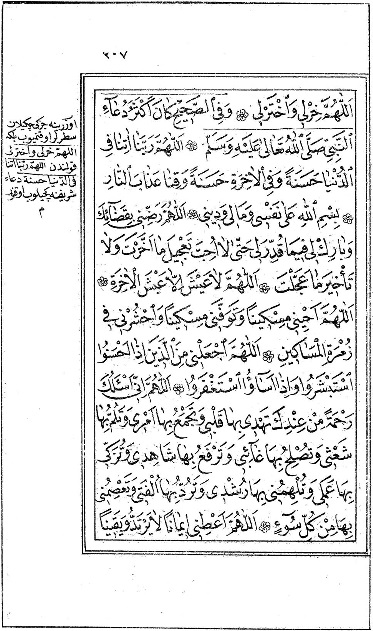 ٣٠٧
اَللّٰهُمَّ خِرْلِى وَاخْتَرْلِى ۞ وَفِى الصَّحِيحِ كَانَ اَكْثَرُ دُعَاءِ
النَّبِىِّ صَلَّى اللّٰهُ تَعَالٰى عَلَيْهِ وَسَلَّمَ ۞ اَللّٰهُمَّ رَبَّنَا اٰتِنَا فِى
الدُّنْيَا حَسَنَةً وَفِى الْاٰخِرَةِ حَسَنَةً وَقِنَا عَذَابَ النَّارِ
۞ بِسْمِ اللّٰهِ عَلٰى نَفْسِى وَمَالِى وَدِينِى ۞ اَللّٰهُمَّ رَضِّنِى بِقَضَائِكَ
وَبَارِكْ لِى فِيمَا قُدِّرَ لِى حَتّٰى لَا اُحِبَّ تَعْجِيلَ مَا اَخَّرْتَ وَلَا
تَأْخِيرَ مَا عَجَّلْتَ ۞ اَللّٰهُمَّ لَا عَيْشَ اِلَّا عَيْشُ الْاٰخِرَةِ ۞
اَللّٰهُمَّ اَحْيِنِى مِسْكِينًا وَتَوَفَّنِى مِسْكِينًا وَاحْشُرْنِى فِى
زُمْرَةِ الْمَسَاكِينِ ۞ اَللّٰهُمَّ اجْعَلْنِى مِنَ الَّذِينَ اِذَا اَحْسَنُوا
اسْتَبْشَرُوا وَاِذَا اَسَاؤُا اسْتَغْفَرُوا ۞ اَللّٰهُمَّ اِنِّى اَسْئَلُكَ
رَحْمَةً مِنْ عِنْدِكَ تَهْدِى بِهَا قَلْبِى وَتَجْمَعُ بِهَا اَمْرِى وَتَلُمُّ بِهَا
شَعْثِى وَتُصْلِحُ بِهَا غَائِبِى وَتَرْفَعُ بِهَا شَاهِدِى وَتُزَكِّى
بِهَا عَمَلِى وَتُلْهِمُنِى بِهَا رُشْدِى وَتَرُدُّ بِهَا اُلْفَتِى وَتَعْصِمُنِى
بِهَا مِنْ كُلِّ سُوءٍ ۞ اَللّٰهُمَّ اَعْطِنِى اِيمَانًا لَا يَرْتَدُّ وَيَقِينًا
اوزرينه چكيلان
سطرلر اوقنميوب بلكه
اللهم خرلى واخترلى
قولندن اللهم ربنا اتنا
فى الدنيا حسنة دعاء
شريفنه كچيلوب اوقنه
م